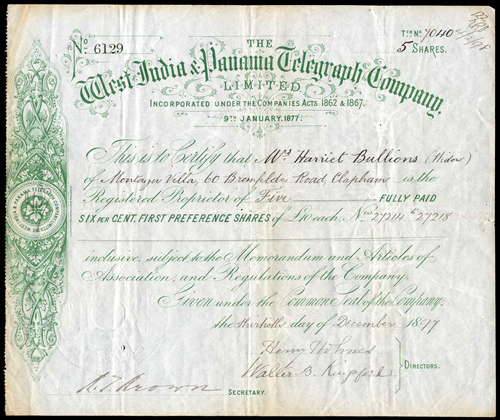 THE
West India & Panama Telegraph Company,
LIMITED
INCORPORATED UNDER THE COMPANIES ACTS 1862 & 1867.
9TH JANUARY, 1877.
No. 6129
Tfr No. 7040
5 SHARES.
This is to Certify that Mrs Harriet Bullions (Widow)
of Montagu Villa, 60 Bromfelde Road, Clapham is the
Registered Proprietor of Five FULLY PAID
SIX PER CENT, FIRST PREFERENCE SHARES of £10 each, Nos 27214 to 27218
inclusive, subject to the Memorandum and Articles of
Association, and Regulations of the Company.
Given under the Common Seal of the Company,
the thirtieth day of December 1897
Henry Holmes
Walter B. Kingsford
DIRECTORS.
R.T. Brown
SECRETARY.